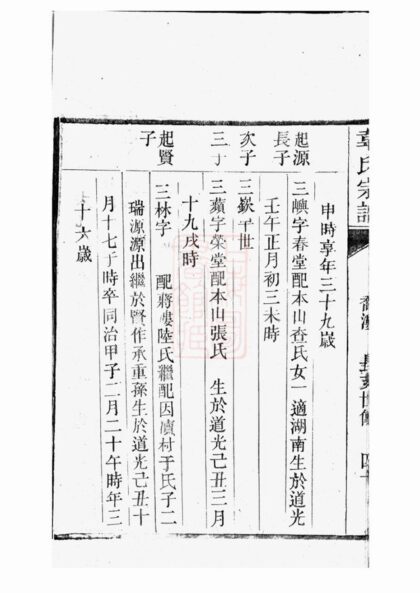 章氏宗譜
申時享年三十九歲
起源長子
三嶼字春堂配本山查氏女一適湖南生於道光
壬午正月初三未時
次子
三嶔早世
三子
三蘋字榮堂配本山張氏 生於道光己丑三月
十九戌時
起賢子
三林字 配蔣塿陸氏繼配因瀆村于氏子二
瑞源源出繼於賢作承重孫生於道光己丑十
月十七子時卒同治甲子二月二十午時年三
十六歲